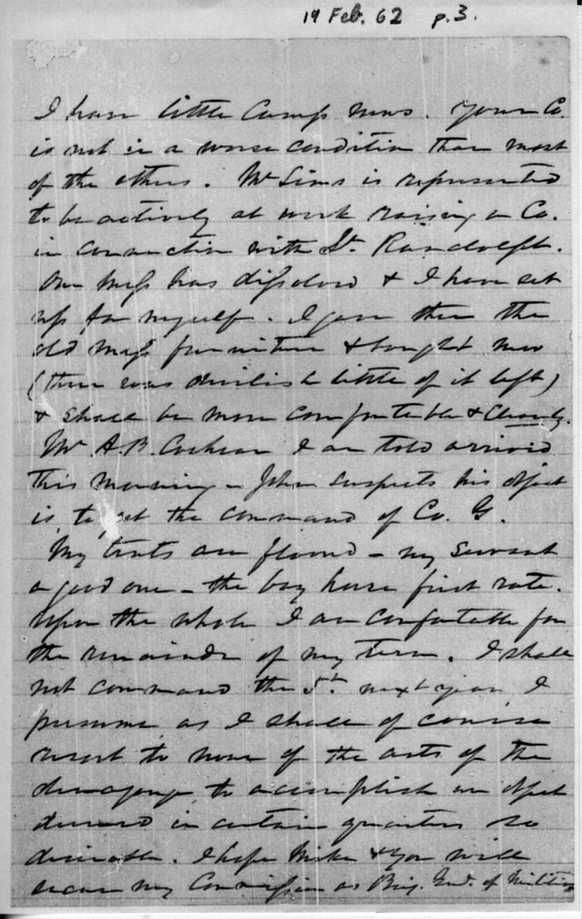 19 Feb. 62 p.3.
I have little Camp news. Your Co.
is not in a worse condition than most
of the others. Mr Sims is represented
to be actively at work raising a Co.
in connection with Lt. Randolph.
Our mess has dissolved & I have set
up for myself. I gave them the
old mess furniture & bought new
(there was devilish little of it left)
& shall be more comfortable & cleanly.
Mr A. B. Cochran I am told arrived
this morning - John suspects his object
is to get the command of Co. G.
My tents are floored - my servant
a good one - the bay horse first rate.
Upon the whole I am comfortable for
the remainder of my term. I shall
not command the 5th next year I
presume as I shall of course
resort to none of the arts of the
demagogue to accomplish an object
deemed in certain quarters so
desirable. I hope Mike & you will
secure my Commission as Brig. Genl. of Militia